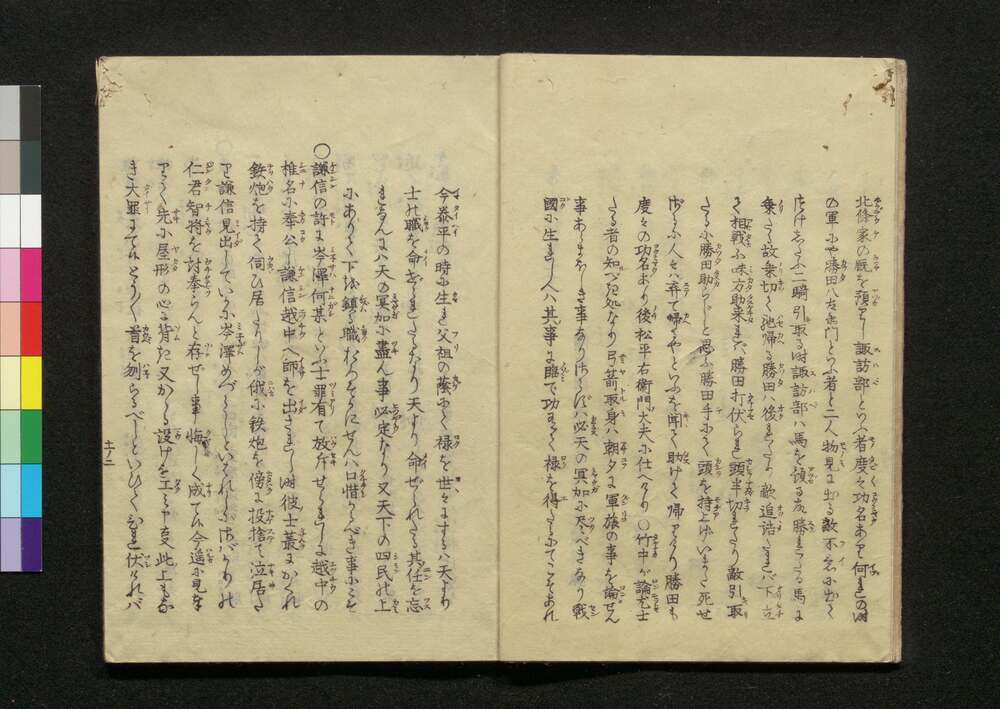 北條家の厩を預りし諏訪部といふ者度々功名あり何れの時
の軍にや勝田八右衛門といふ者と二人物見に出る敵不意に出て
追けしかば二騎引取る時諏訪部ハ馬を預る故勝れたる馬に
乗たる故乗切て池帰る勝田ハ後れたり敵追詰たれバ下立
て相戦ふ味方助来れバ勝田打伏られ頭半切れたり敵引取
たるに勝田助らじと思ふ勝田手にて頭を持上げいまだ死せ
ずかゝる人をバ弃て帰るやといふを聞て助けて帰りたり勝田も
度々の功名あり後松平右衛門大夫に仕へたり〇竹中が論尤士
たる者の知べき処なり弓箭取身ハ朝夕に軍旅の事を論ぜん
事あしまじき事なり然らずバ必天の冥加に尽べきなり戦
國に生れし人ハ其事に臨で功有て禄を得たるにてこそあれ
今泰平の時に生れ父祖の蔭にて禄を世々にするハ天より
士の職を命ぜられたるなり天より命ぜられたる其任を忘
れなんにハ天の冥加に盡ん事必定なり又天下の四民の上
にありて下を鎮る職むなしくせんハ口惜かるべき事にこそ
〇謙信の許に岑澤何某といふ士罪有て放斥せられしに越中の
椎名に奉公し謙信越中へ師を出されし時彼士叢にかくれ
鉄炮を持て伺ひ居たりしが俄に鉄炮を傍に投捨て泣居た
り謙信見出していかに岑澤めづらしといはれしかバかの
仁君智将を討奉らんと存ぜし事悔しく成て候今遥に見奉
りて先に屋形の心に背き又かゝる設けを工ミ候事此上もなき
き大罪にて候とく〱首を刎らるべしといひてひれ伏けれバ
十ノ二